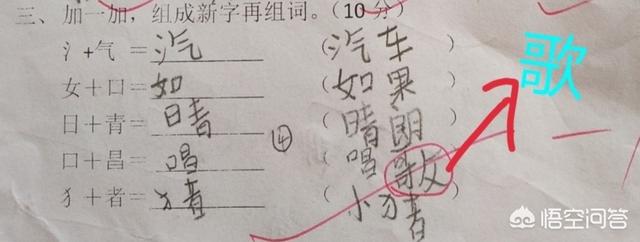 三、加一加,组成新字再组词。(10分)
氵+气=汽 (汽车)
女+口=如 (如果)
日+青=晴 (晴朗)
口+昌=唱 ④ (唱 )
犭+者=猪 (小猪)
歌
悟空问答